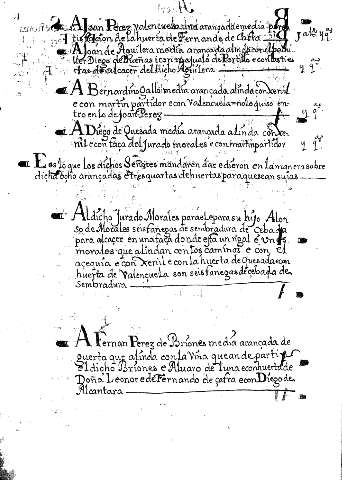 A Joan Perez Valenzuela media arançada de media por
tision de la huerta de Fernando de Çafra
A Joan de Aguilera media arançada alinda con el
A Bernardino Gallo media arançada alinda con xenil
e con martin partidor e con Valençuela no lo quiso en
tro en lo de Joan Perez
A Diego de Quesada media arançada alinda con xe
nil e con haça del Jurado morales e con martin partidor
E es lo que los dichos Señores mandaron dar e dieron en la manera sobre
dicha ocho arançadas e tres quartas de huertas para que sean suias
Al dicho Jurado Morales para el e para su hijo Alon
so de Morales seis fanegas de sembradura de Cebada
para alcaçer en una haça do nde esta un nogal e unos
morales que alindan con los caminos e con el
açequia e con Xenil e con la huerta de Quesada e con
huerta de Valençuela son seis fanegas de cebada de
Sembradura
A Fernan Perez de Briones media arançada de
guerta que alinda con la Viña que an de partir
el dicho Briones e Alvaro de luna e con huerta de
Doña Leonor e de Fernando de çafra e con Diego de
Alcantara